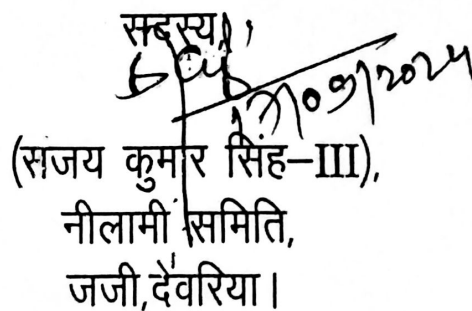 सदस्य,
17/09/2024
(संजय कुमार सिंह–III),
नीलामी समिति,
जजी,देवरिया।